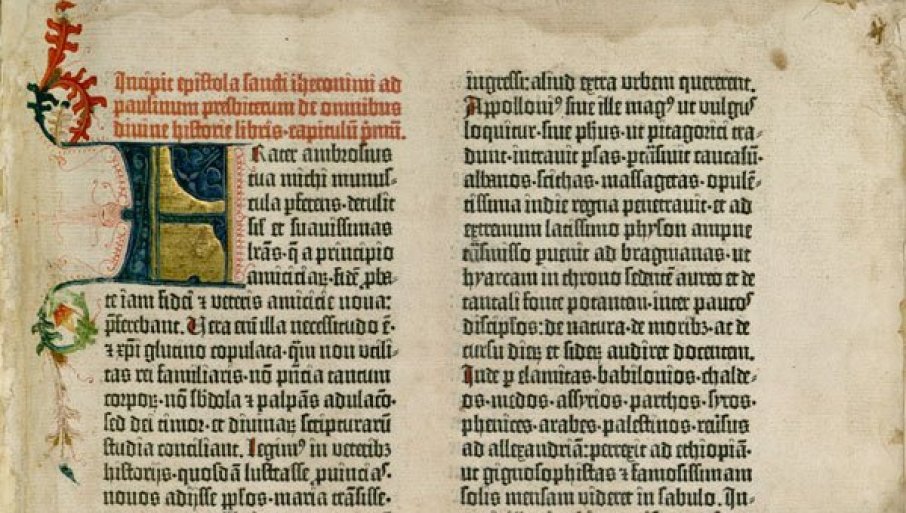 Incipit epistola sancti iheronimi ad
paulinum presbiterum de omnibus
divine historie libris·capitulū pꝛimū.
Frater ambrosius
tua michi munus-
cula pferens·detulit
sil et suavissimas
lrās·q̄ a principio
amiciciaꝝ·fidē pba-
te iam fidei ⁊ veteris amicicie nova:
pferebant. Vera em̄ illa necessitudo ē·
⁊ xp̄i glutino copulata·qm̄ non utili-
tas rei familiaris·nō pn̄cia tantum
corpoꝝ·nō sb̄dola ⁊ palpās adulacō·
sed dei timor·et divinaꝝ scripturarū
studia conciliant. Legimꝰ in veteribꝫ
historijs·quosdā lustrasse pvincias·
novos adijsse pplos·maria trāsisse·
ingressi: aliud extra urbem quererent.
Appolloniꝰ sive ille magꝰ ut vulgꝰ
loquitur·sive phus·ut pitagorici tra-
dunt·intravit psas·ptrāsivit caucasū·
albanos·scithas·massagetas·opulē-
tissima indie regna penetravit·et ad
extremum latissimo physon ampne
trāsmisso puenit ad bragmanas·ut
hyarcam in throno sedentē aureo et de
tantali fonte potantem·inter paucos
discipłos: de natura·de moribꝫ·ac de
cursu dieꝝ et sideꝝ audiret docentem.
Inde p elamitas·babilonios·chalde-
os·medos·assyrios·parthos·syros·
phenices·arabes·palestinos·revsus
ad allexandriā: perrexit ad ethiopiā·
ut gignosophistas ⁊ famosissimam
solis mensam videret in sabulo. In-